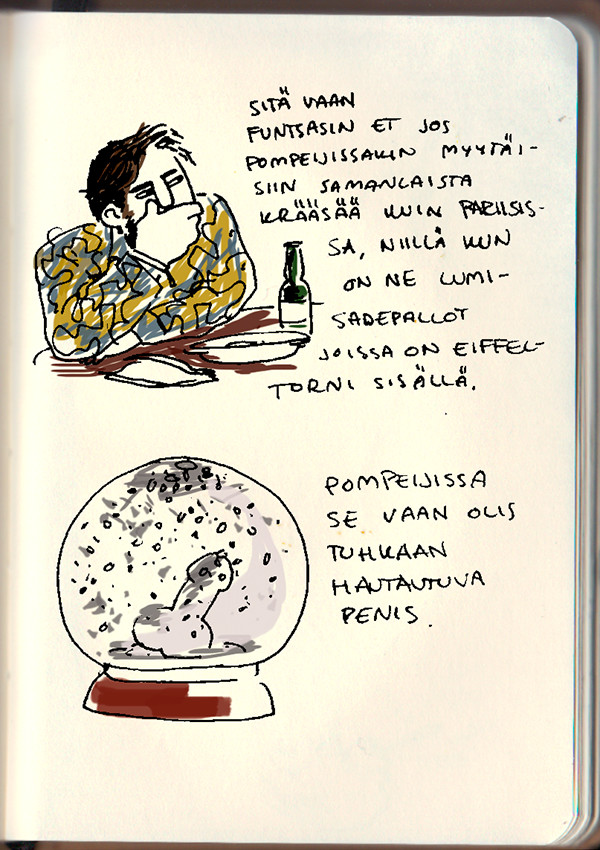 SITÄ VAAN
FUNTSASIN ET JOS
POMPEIJISSAKIN MYYTÄI-
SIIN SAMANLAISTA
KRÄÄSÄÄ KUIN PARIISIS-
SA, NIILLÄ KUN
ON NE LUMI-
SADEPALLOT
JOISSA ON EIFFEL-
TORNI SISÄLLÄ.
POMPEIJISSA
SE VAAN OLIS
TUHKAAN
HAUTAUTUVA
PENIS.